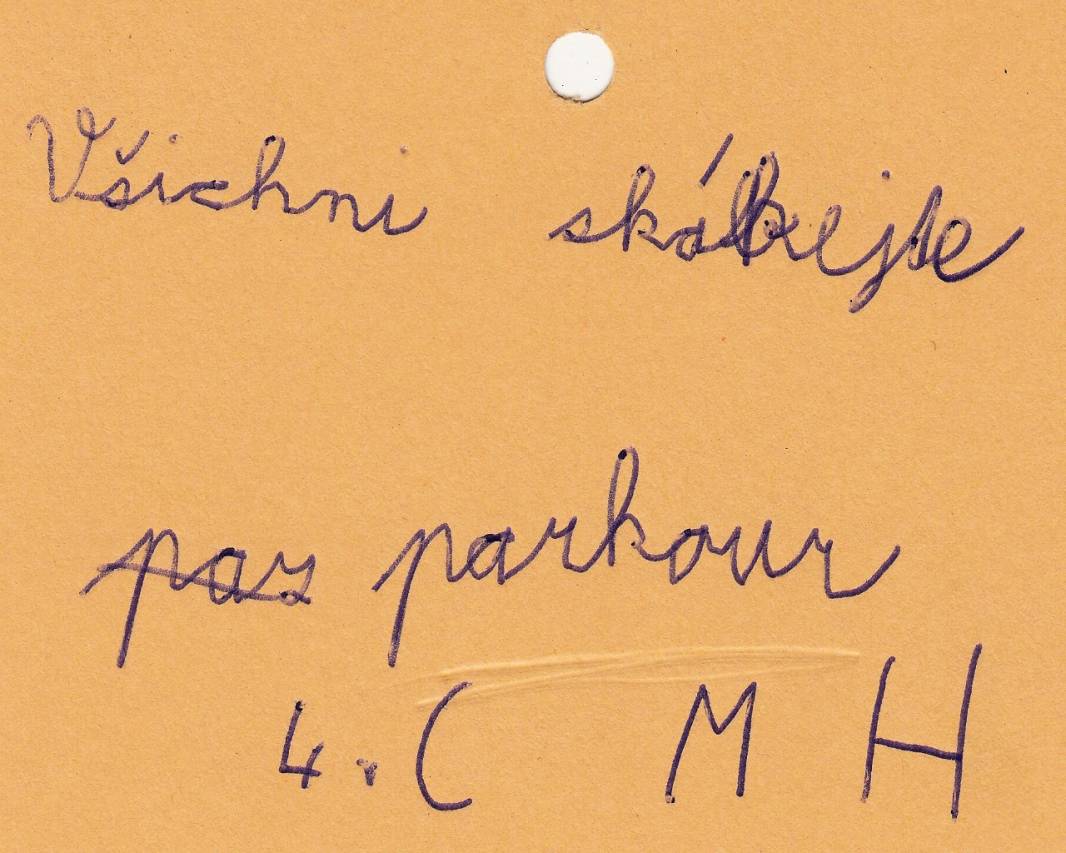 Všichni skákejte
paz parkour
4. C M H